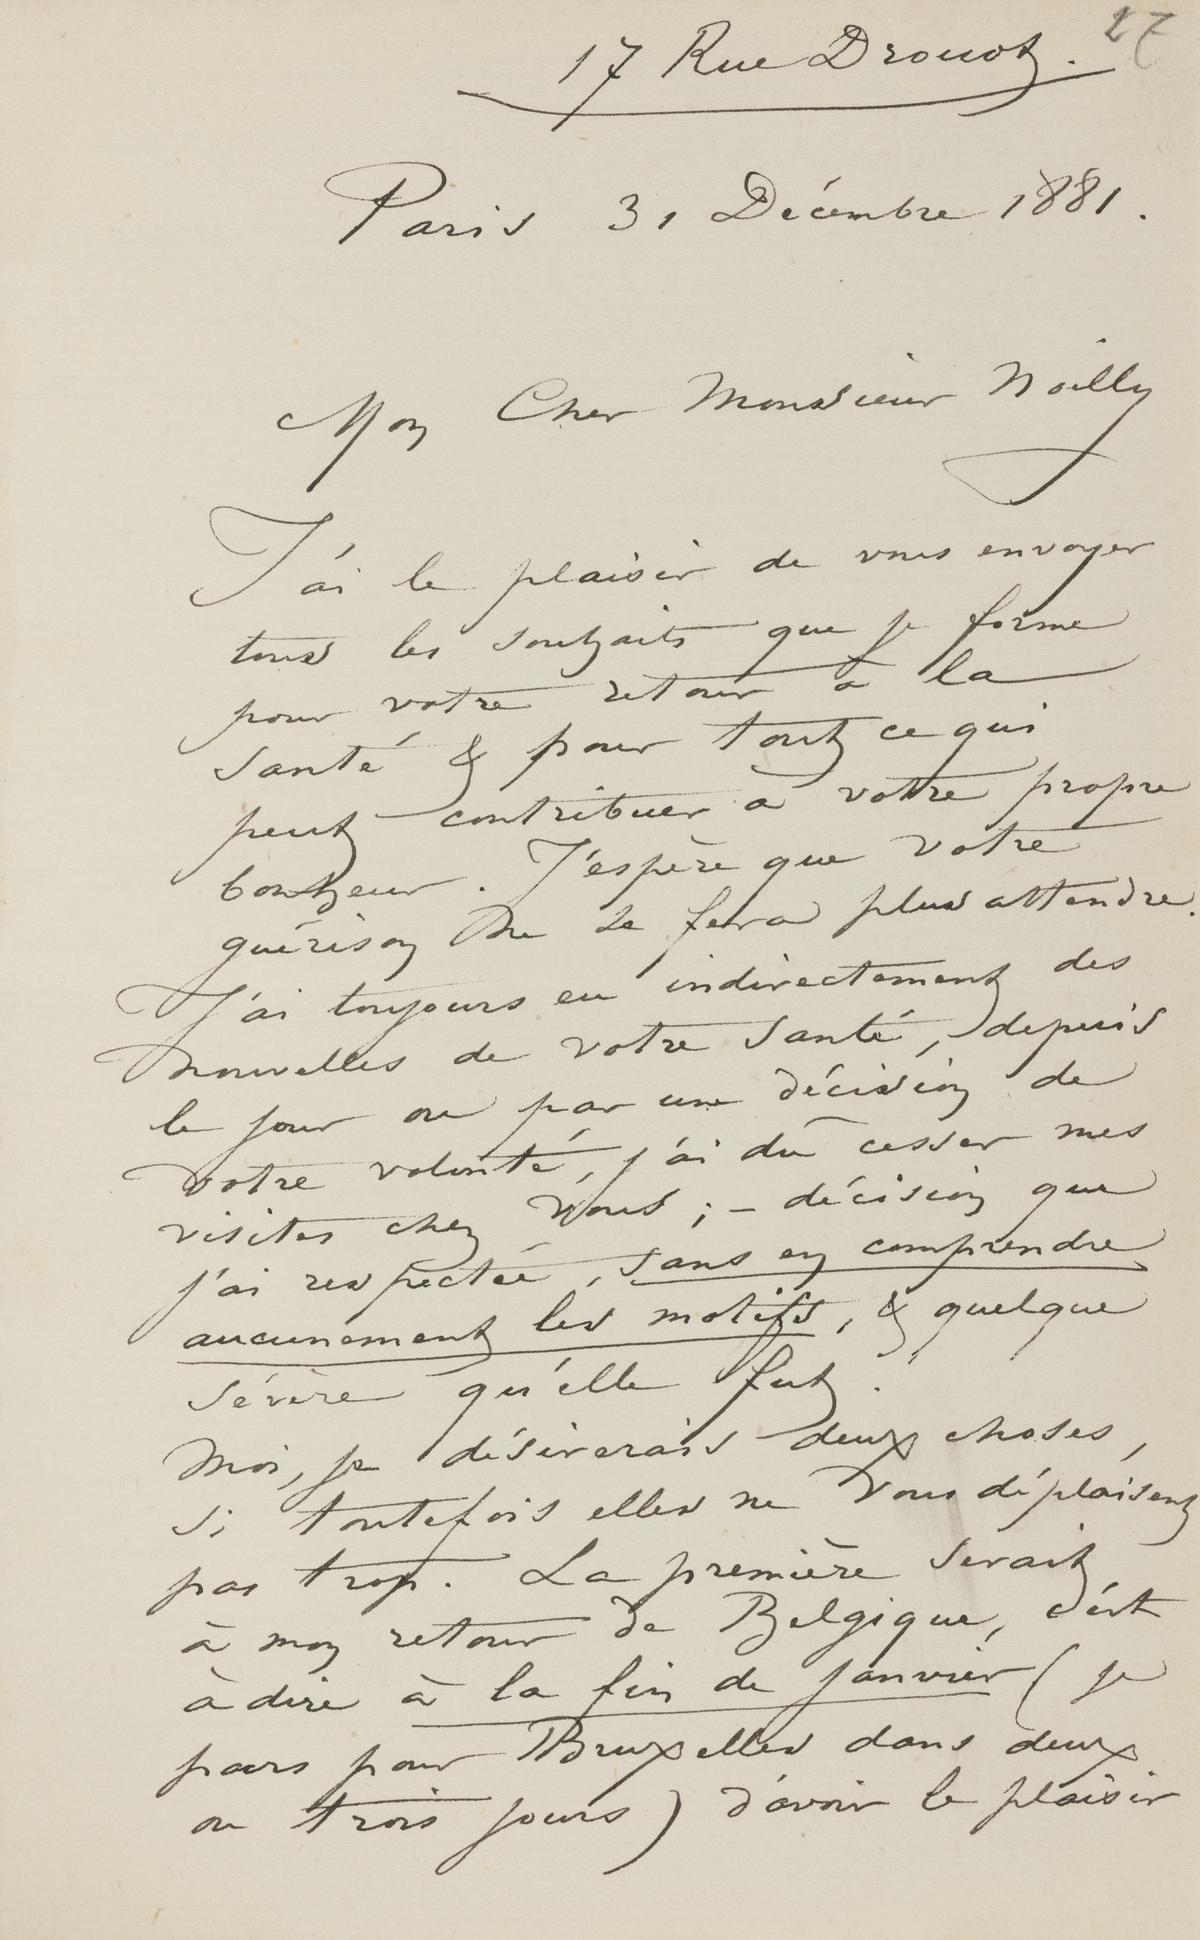 27
17 Rue Drouot.
Paris 31 Décembre 1881.
Mon Cher Monsieur Noilly
J'ai le plaisir de vous envoyer
tous les souhaits que je forme
pour votre retour à la
santé & pour tout ce qui
peut contribuer à votre propre
bonheur. J'espère que votre
guérison ne se fera plus attendre.
J'ai toujours eu indirectement des
nouvelles de votre santé, depuis
le jour ou par une décision de
votre volonté, j'ai dû cesser mes
visites chez vous ; – décision que
j'ai respectée, sans en comprendre
aucunement les motifs, & quelque
sévère qu'elle fut.
Moi, je désirerais deux choses,
si toutefois elles ne vous déplaisent
pas trop. La première serait
à mon retour de Belgique, c'est
à dire à la fin de janvier (je
pars pour Bruxelles dans deux
ou trois jours) d'avoir le plaisir